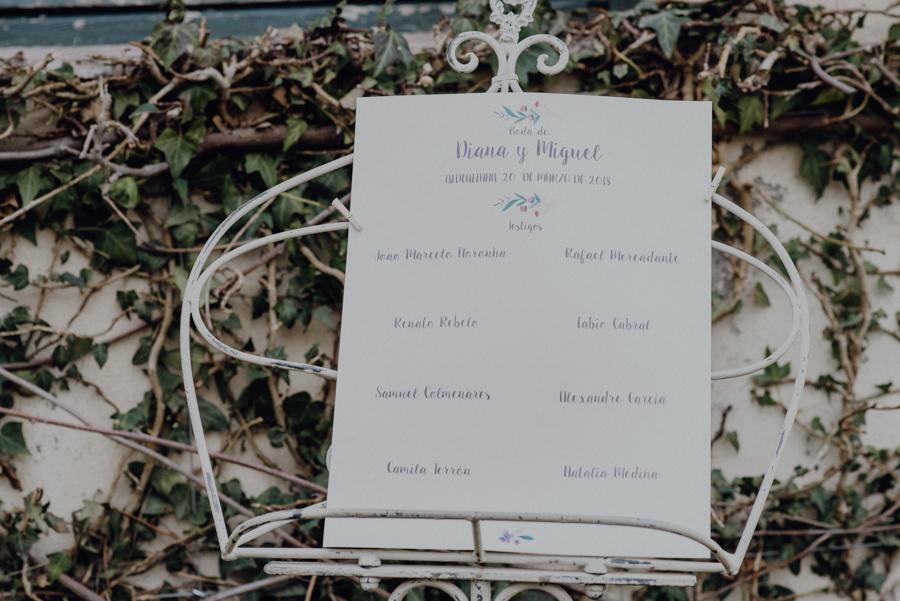 Boda de
Diana y Miguel
20 DE MARZO DE 2018
Testigos
Joao Marcelo Noronha
Rafael Mercadante
Renato Rebelo
Fabio Cabral
Samuel Colmenares
Alexandre Garcia
Camila Terrón
Natalia Medina